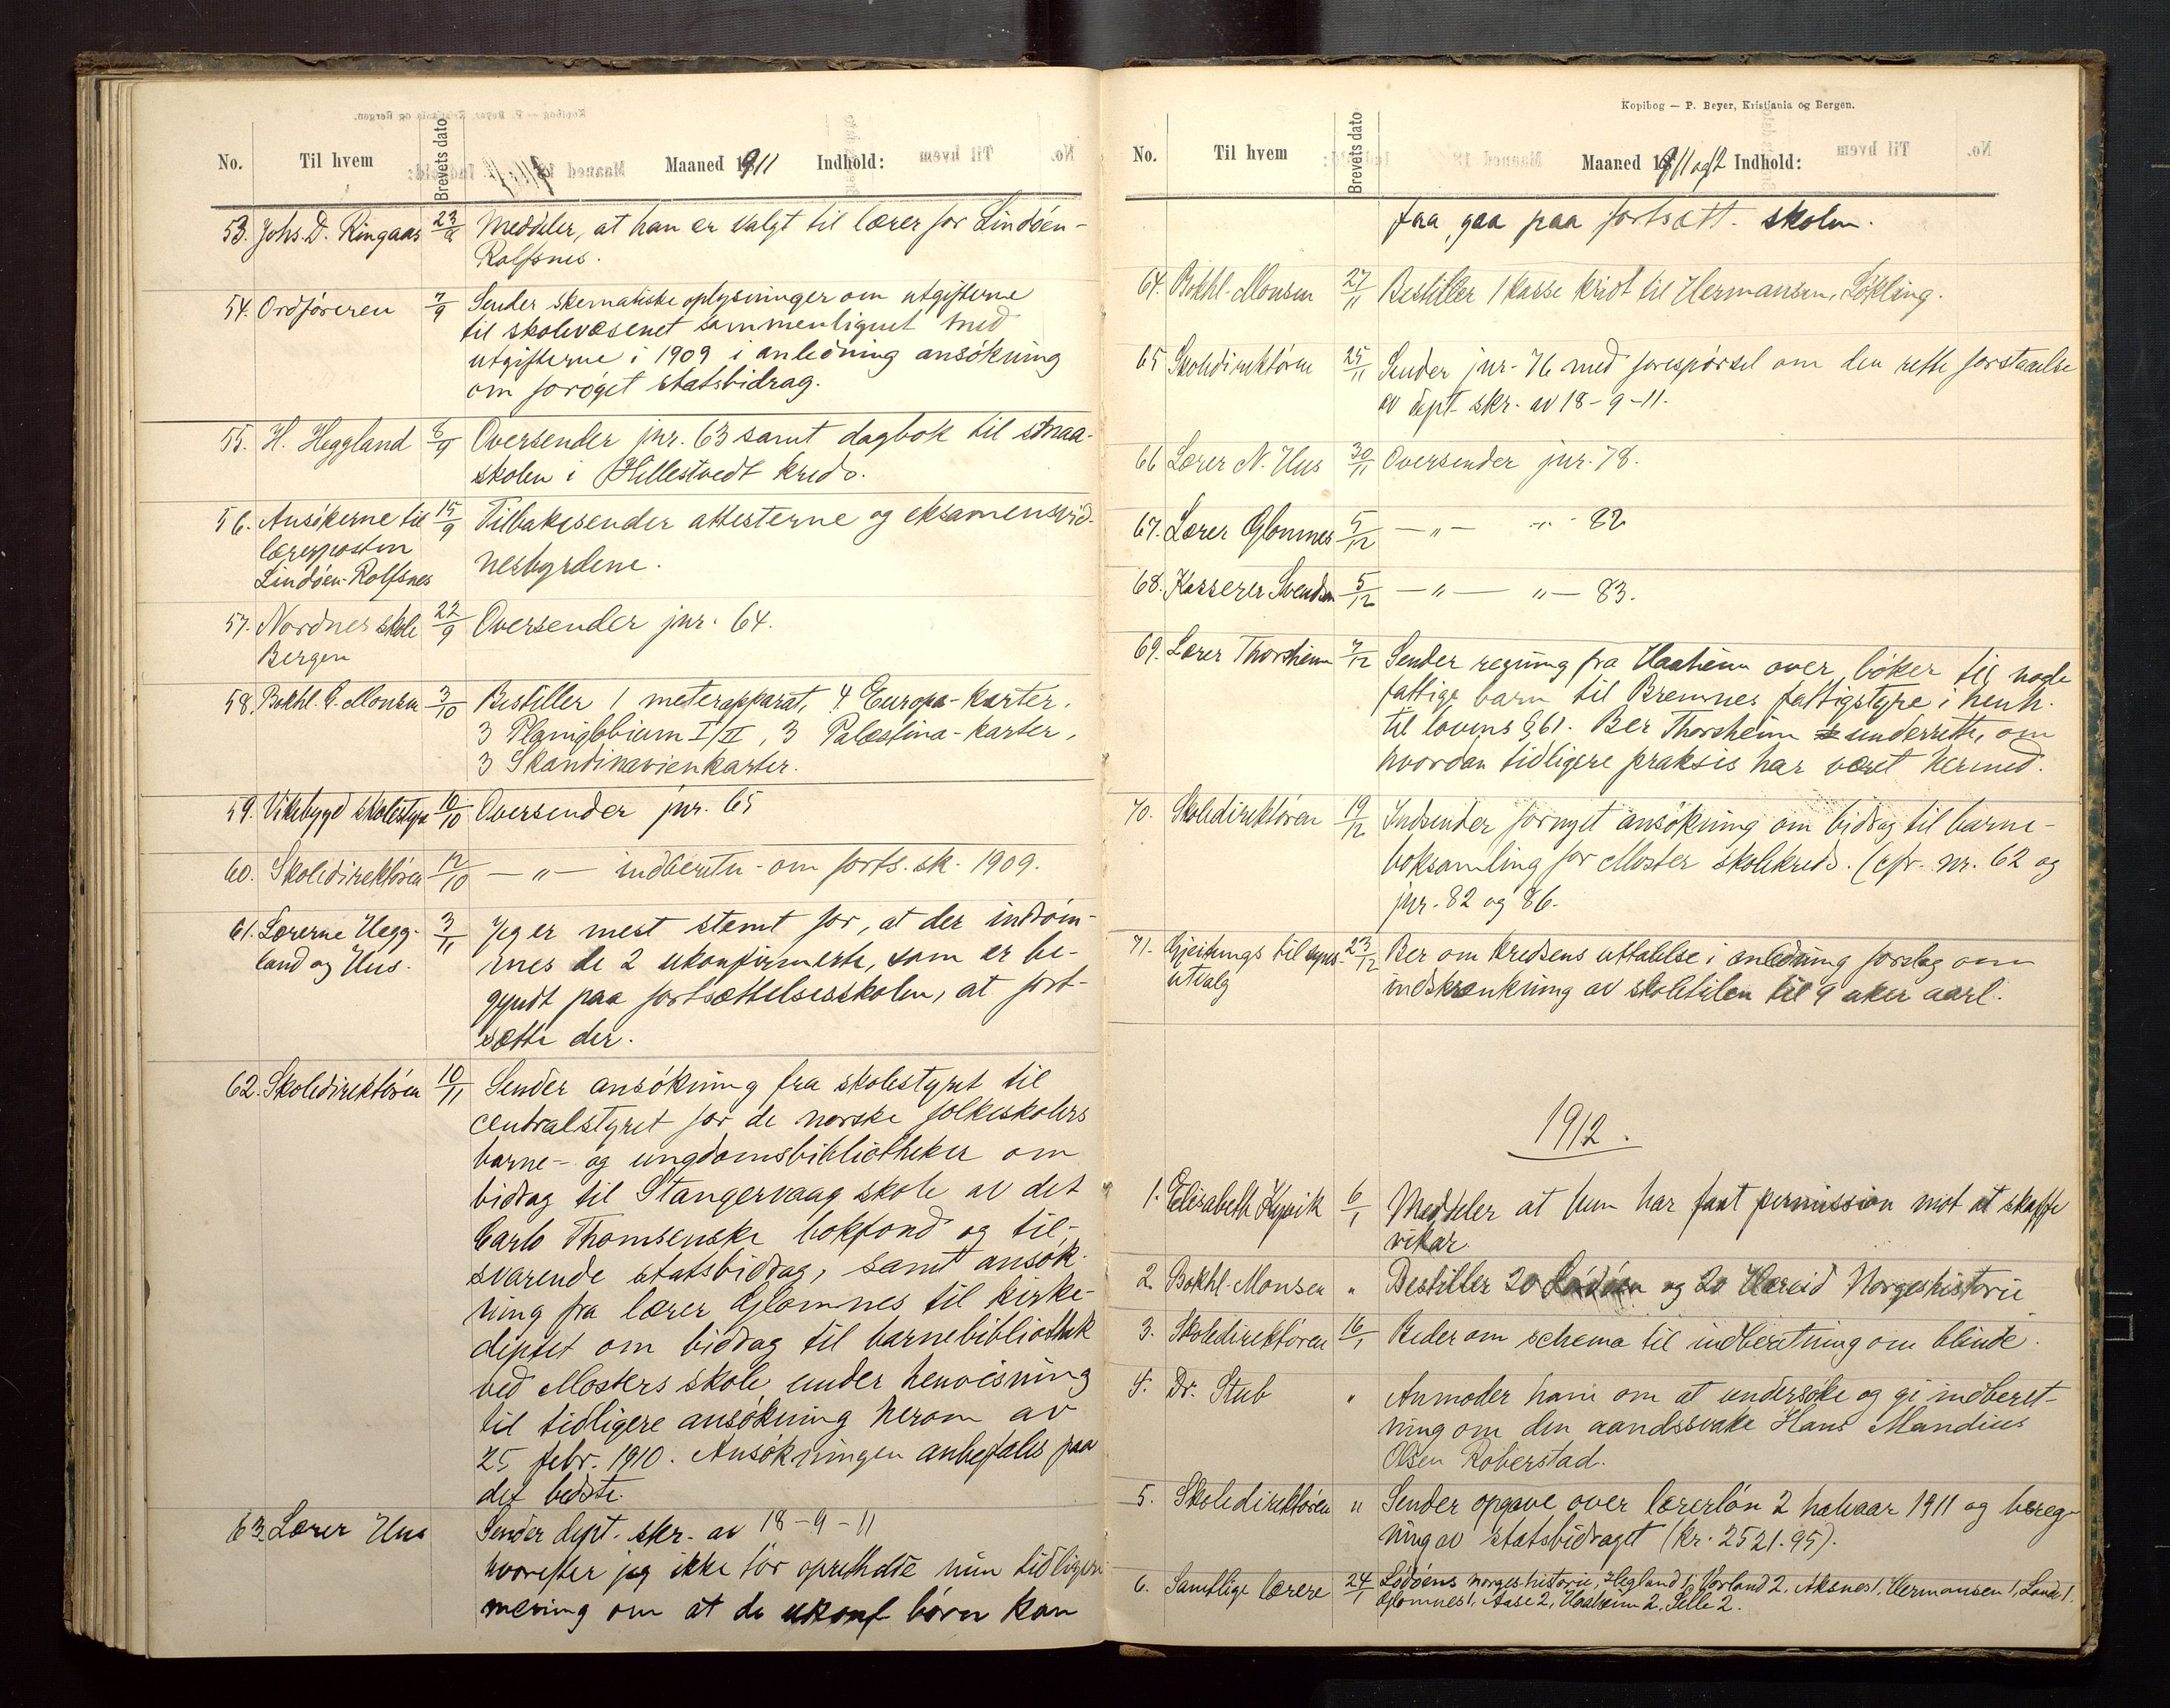 No. Til hvem Brevets dato Maaned 1911 Indhold:
53. Johs. D. Ringaas 23/8 Meddeler, at han er valgt til lærer for Lindøen-
Rolfsnes.
54. Ordføreren 7/9 Sender skematiske oplysninger om utgifterne
til skolevæsenet sammenlignet med
utgifterne i 1909 i anledning ansökning
om forøget statsbidrag.
55. H. Heggland 8/9 Oversender jnr. 63 samt dagbok til smaa-
skolen i Hillestvedt kreds.
56. Ansökerne til 15/9 Tilbakesender attesterne og eksamensvid-
lærerposten nesbyrdene.
Lindöen-Rolfsnes
57. Nordnes skole 22/9 Oversender jnr. 64.
Bergen
58. Bokhl. G. Monsen 3/10 Bestiller 1 meterapparat, 4 Europa-karter,
3 Planiglobium I/II, 3 Palæstina-karter,
3 Skandinavienkarter.
59. Vikebygd skolestyre 10/10 Oversender jnr. 65
60. Skoledirektören 12/10 — „ — indberetn. om forts. sk. 1909.
61. Lærerne Hegg- 3/11 Jeg er mest stemt for, at der indröm-
land og Hus. mes de 2 ukonfirmerte, som er be-
gyndt paa fortsættelsesskolen, at fort-
sætte der.
62. Skoledirektören 10/11 Sender ansökning fra skolestyret til
centralstyret for de norske folkeskolers
barne- og ungdomsbibliotheker om
bidrag til Stangervaag skole av det
Carlo Thomsenske bokfond og til-
svarende statsbidrag, samt ansök-
ning fra lærer Glomnes til kirke-
deptet om bidrag til barnebibliothek
ved Mosters skole under henvisning
til tidligere ansökning herom av
25 febr. 1910. Ansökningen anbefales paa
det bedste.
63. Lærer Hus Sender dept. skr. av 18-9-11
hvorefter jeg ikke tör oprettholde min tidligere
mening om at de ukonf börn kan
Kopibog — P. Beyer, Kristiania og Bergen.
No. Til hvem Brevets dato Maaned 1911 og 12 Indhold:
faa gaa paa fortsætt. skolen.
64. Bokhl. Monsen 27/11 Bestiller 1 kasse kridt til Hermansen, Løkling.
65 Skoledirektören 25/11 Sender jnr. 76 med forespörsel om den rette forstaaelse
av dept. skr. av 18-9-11.
66 Lærer N. Hus 30/11 Oversender jnr. 78.
67. Lærer Glomnes 5/12 — „ — „ - 82
68. Kasserer Svendsen 5/12 — „ — „ — 83.
69. Lærer Thorsheim 7/12 Sender regning fra Haaheim over böker til nogle
fattige barn til Bremnes fattigstyre i henh.
til lovens § 61. Ber Thorsheim underrette, om
hvordan tidligere praksis har været hermed.
70. Skoledirektören 19/12 Indsender fornyet ansökning om bidrag til barne-
boksamling for Moster skolekreds. (cfr. nr. 62 og
jnr. 82 og 86.
71. Gjeitungs tilsyns- 23/12 Ber om kredsens uttalelse i anledning forslag om
utvalg indskrænkning av skoletiden til 9 uker aarl.
1912.
1. Elisabeth Kyvik 6/1 Meddeler at hun har faat permission mot at skaffe
vikar.
2. Bokhl. Monsen „ Bestiller 20 Lödöen og 20 Hæreid Norgeshistorie
3. Skoledirektören 16/1 Beder om schema til indberetning om blinde.
4. Dr. Stub „ Anmoder ham om at undersöke og gi indberet-
ning om den aandssvake Hans Mandius
Olsen Roberstad.
5. Skoledirektören „ Sender opgave over lærerlön 2 halvaar 1911 og bereg-
ning av statsbidraget (kr. 2521.95).
6. Samtlige lærere 24/1 Lödöens norgeshistorie, Hegland 1, Vorland 2, Aksnes 1, Hermansen 1, Lande 1.
Glomnes 1, Aase 2, Haaheim 2, Selle 2.